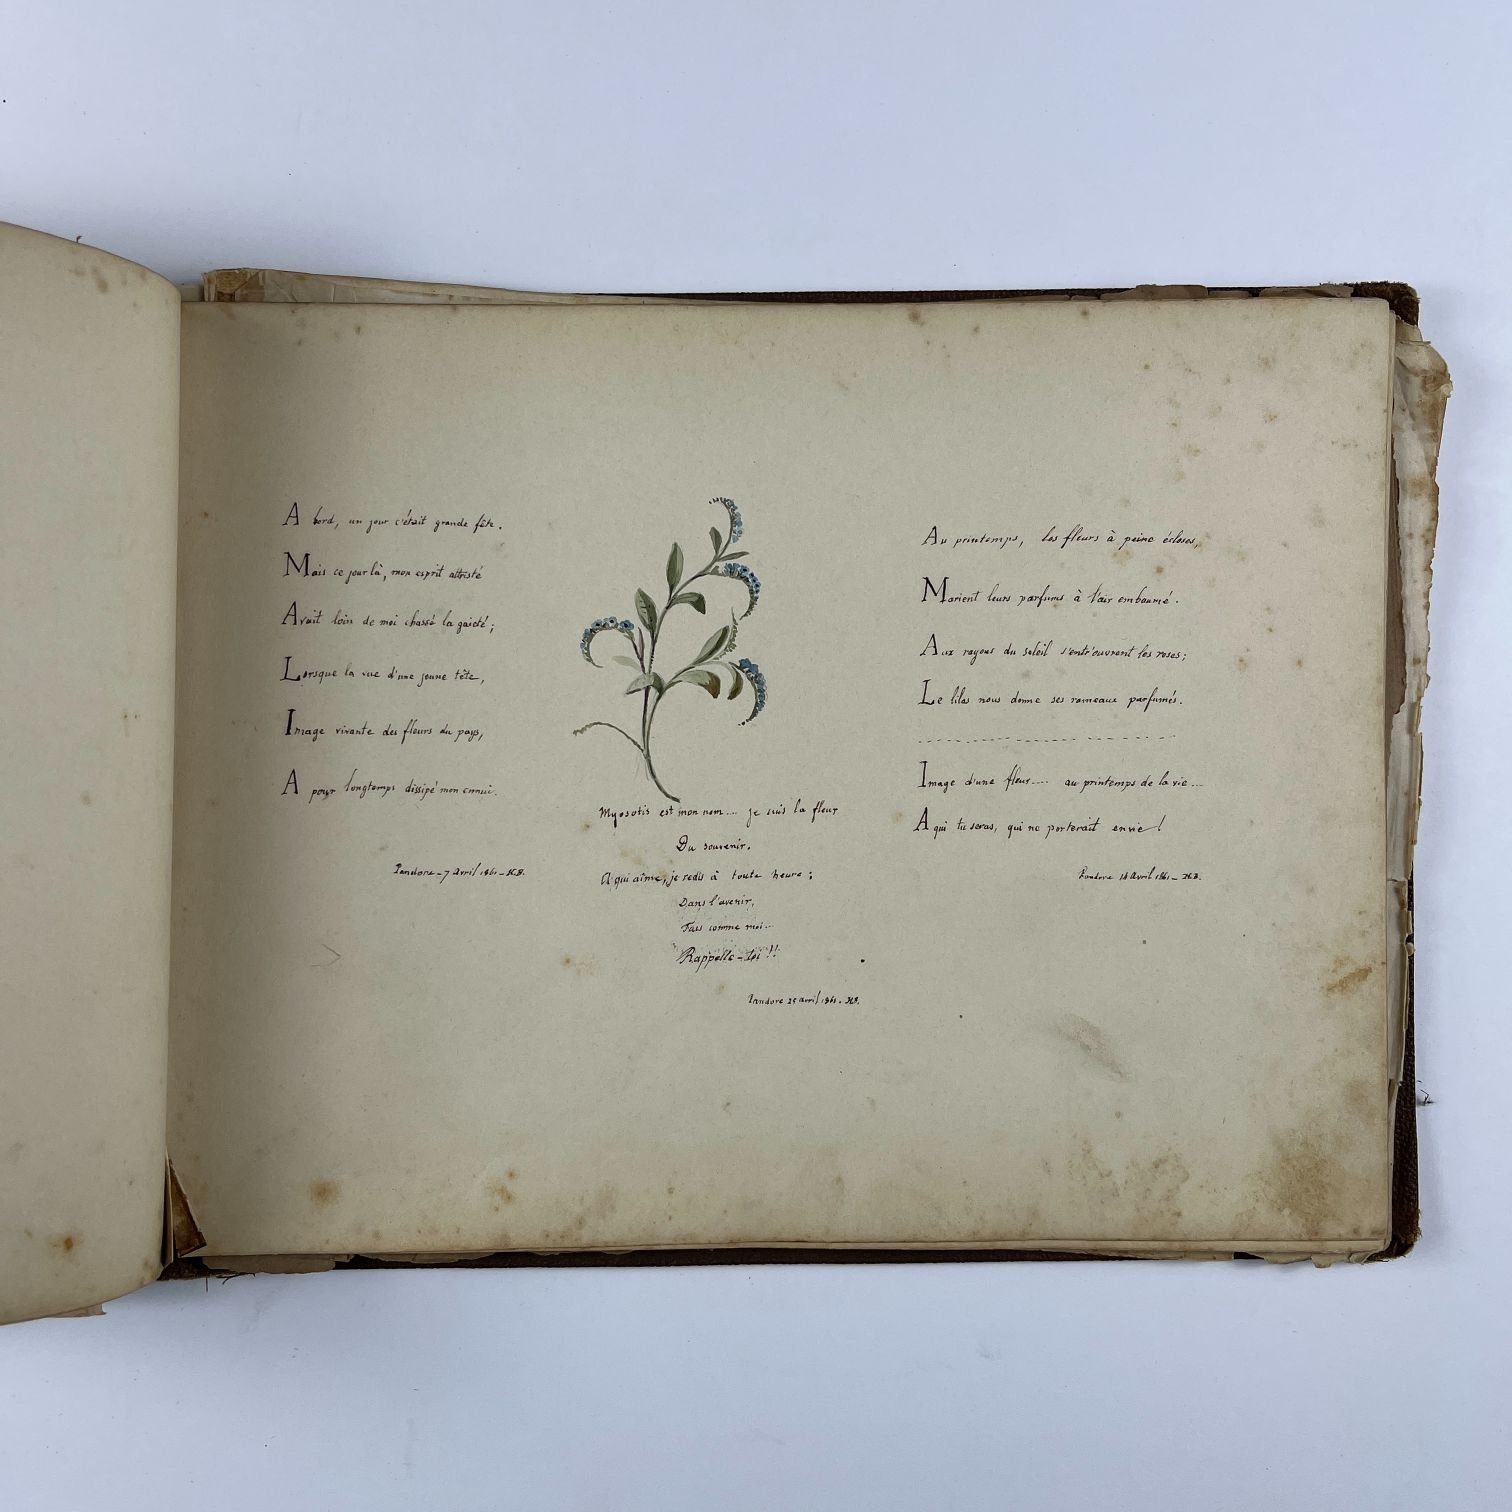 A bord, un jour c'était grande fête.
Mais ce jour là, mon esprit attristé
Avait loin de moi chassé la gaieté;
Lorsque la vue d'une jeune tête,
Image vivante des fleurs du pays,
A pour longtemps dissipé mon ennui.
Pandore - 7 Avril 1861 - H.B.
Myosotis est mon nom.... je suis la fleur
Du souvenir.
A qui aime, je redis à toute heure :
Dans l'avenir,
Fais comme moi...
Rappelle-toi !!
Pandore 25 avril 1861. H.B.
Au printemps, les fleurs à peine écloses,
Marient leurs parfums à l'air embaumé.
Aux rayons du soleil s'entr'ouvrent les roses;
Le lilas nous donne ses rameaux parfumés.
Image d'une fleur.... au printemps de la vie...
A qui tu seras, qui ne porterait envie!
Pandore 14 Avril 1861 - H.B.